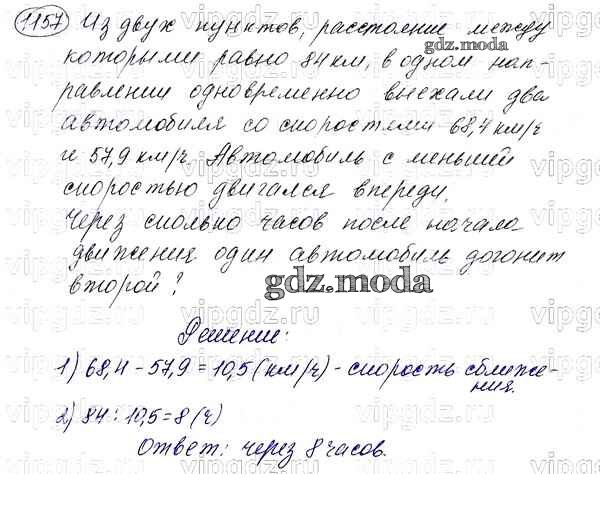 1157 Из двух пунктов, расстояние между
которыми равно 84 км, в одном нап-
равлении одновременно выехали два
автомобиля со скоростями 68,4 км/ч
и 57,9 км/ч. Автомобиль с меньшей
скоростью двигался впереди.
Через сколько часов после начала
движения один автомобиль догонит
второй?
gdz.moda
gdz.moda
Решение:
1) 68,4 - 57,9 = 10,5 (км/ч) - скорость сближе-
ния.
2) 84 : 10,5 = 8 (ч)
Ответ: через 8 часов.